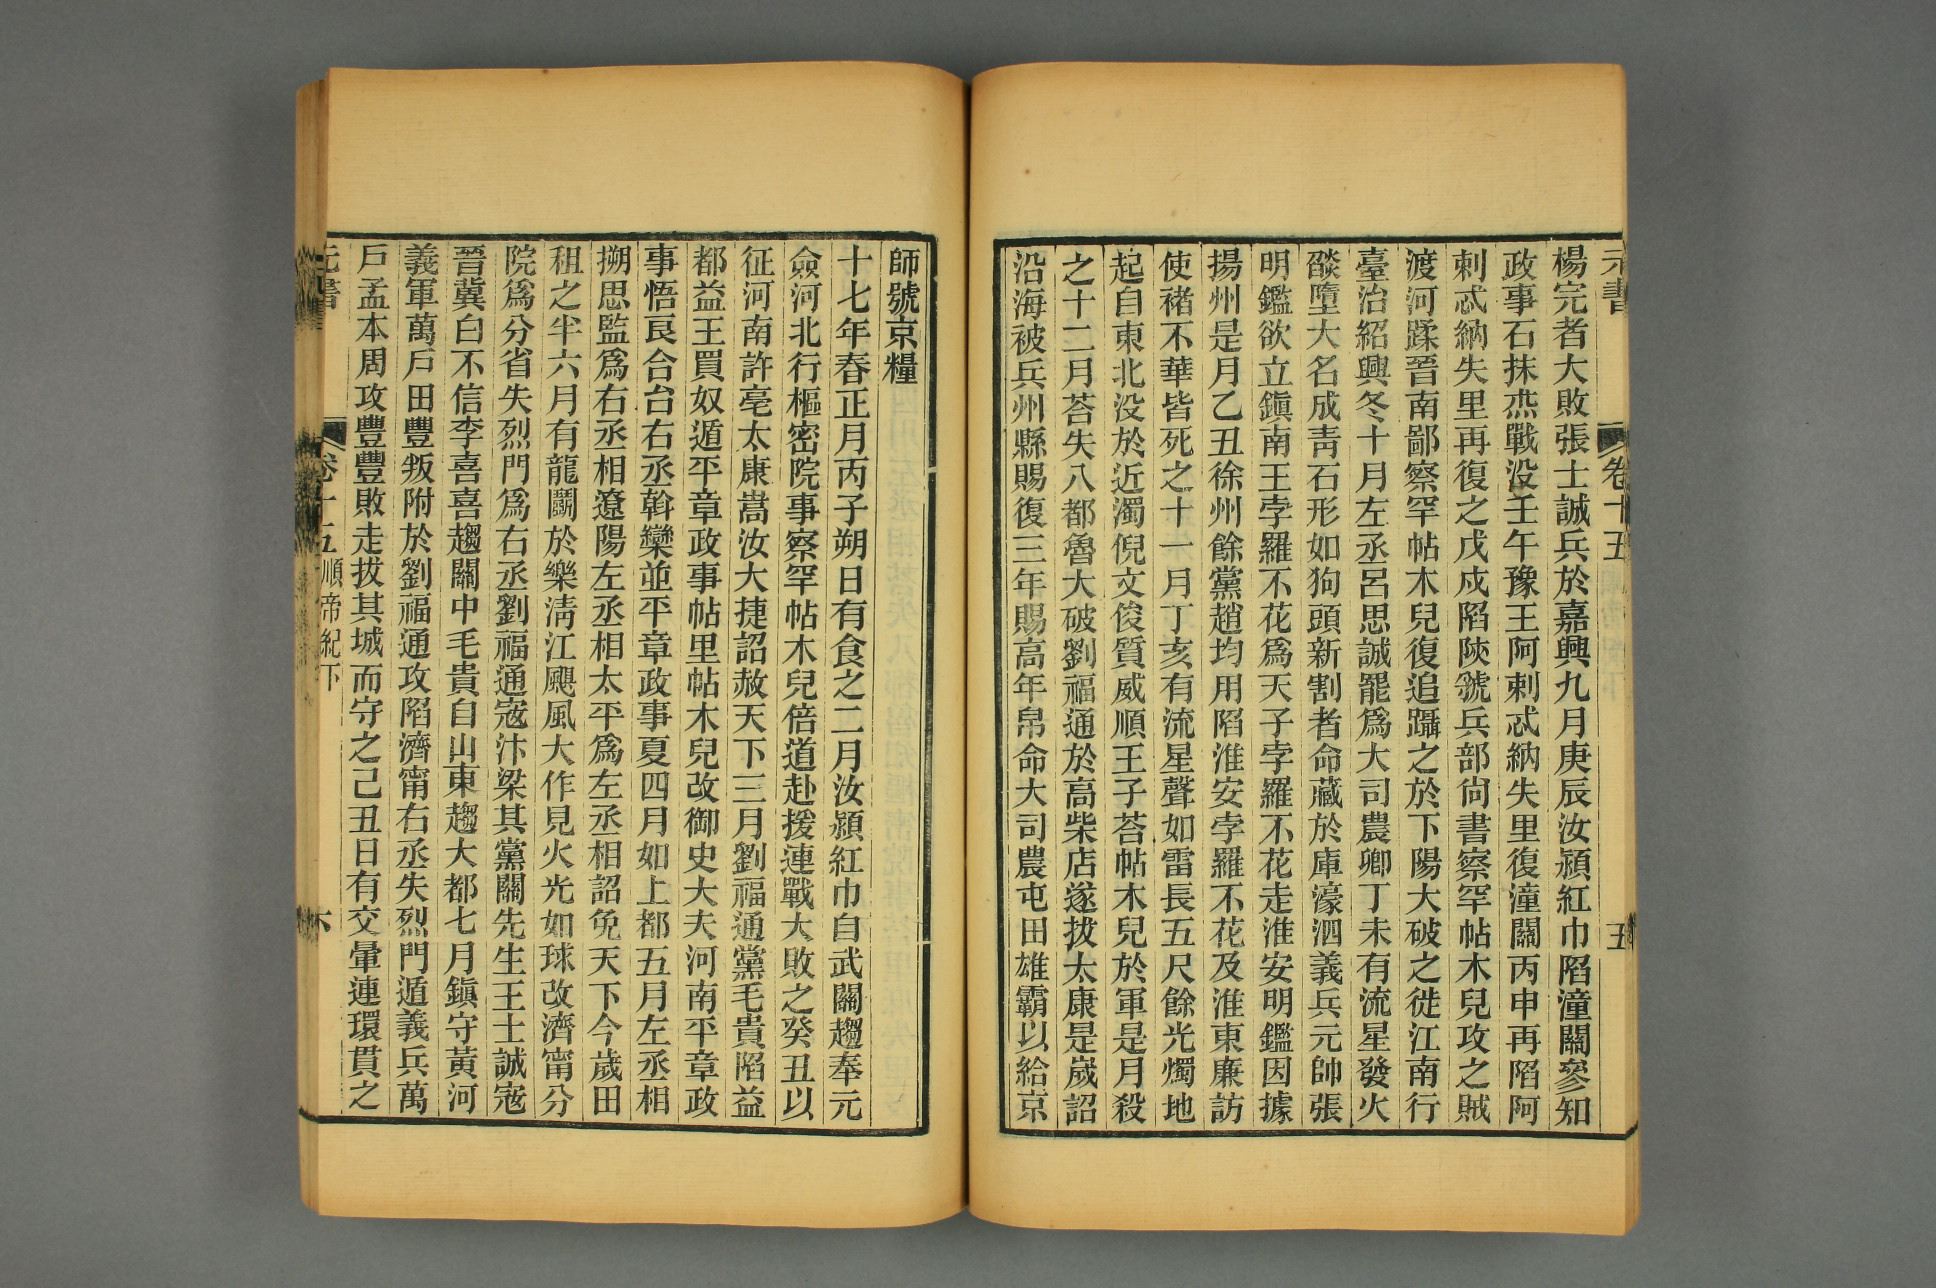 元書
卷十五
五
楊完者大敗張士誠兵於嘉興九月庚辰汝潁紅巾陷潼關參知
政事石抹杰戰没壬午豫王阿剌忒納失里復潼關丙申再陷阿
剌忒納失里再復之戊戌陷陝虢兵部尙書察罕帖木兒攻之賊
渡河蹂晉南鄙察罕帖木兒復追躡之於下陽大破之徙江南行
臺治紹興冬十月左丞呂思誠罷爲大司農卿丁未有流星發火
燄墮大名成靑石形如狗頭新割者命藏於庫濠泗義兵元帥張
明鑑欲立鎭南王孛羅不花爲天子孛羅不花走淮安明鑑因據
揚州是月乙丑徐州餘黨趙均用陷淮安孛羅不花及淮東廉訪
使褚不華皆死之十一月丁亥有流星聲如雷長五尺餘光燭地
起自東北没於近濁倪文俊質威順王子荅帖木兒於軍是月殺
之十二月荅失八都魯大破劉福通於高柴店遂拔太康是歲詔
沿海被兵州縣賜復三年賜高年帛命大司農屯田雄霸以給京
師號京糧
十七年春正月丙子朔日有食之二月汝潁紅巾自武關趨奉元
僉河北行樞密院事察罕帖木兒倍道赴援連戰大敗之癸丑以
征河南許亳太康嵩汝大捷詔赦天下三月劉福通黨毛貴陷益
都益王買奴遁平章政事帖里帖木兒改御史大夫河南平章政
事悟良合台右丞斡欒並平章政事夏四月如上都五月左丞相
搠思監爲右丞相遼陽左丞相太平爲左丞相詔免天下今歲田
租之半六月有龍鬭於樂淸江颶風大作見火光如球改濟甯分
院爲分省失烈門爲右丞劉福通寇汴梁其黨關先生王士誠寇
晉冀白不信李喜喜趨關中毛貴自山東趨大都七月鎭守黃河
義軍萬戶田豐叛附於劉福通攻陷濟甯右丞失烈門遁義兵萬
戶孟本周攻豐豐敗走拔其城而守之己丑日有交暈連環貫之
元書
卷十五順帝紀下
六